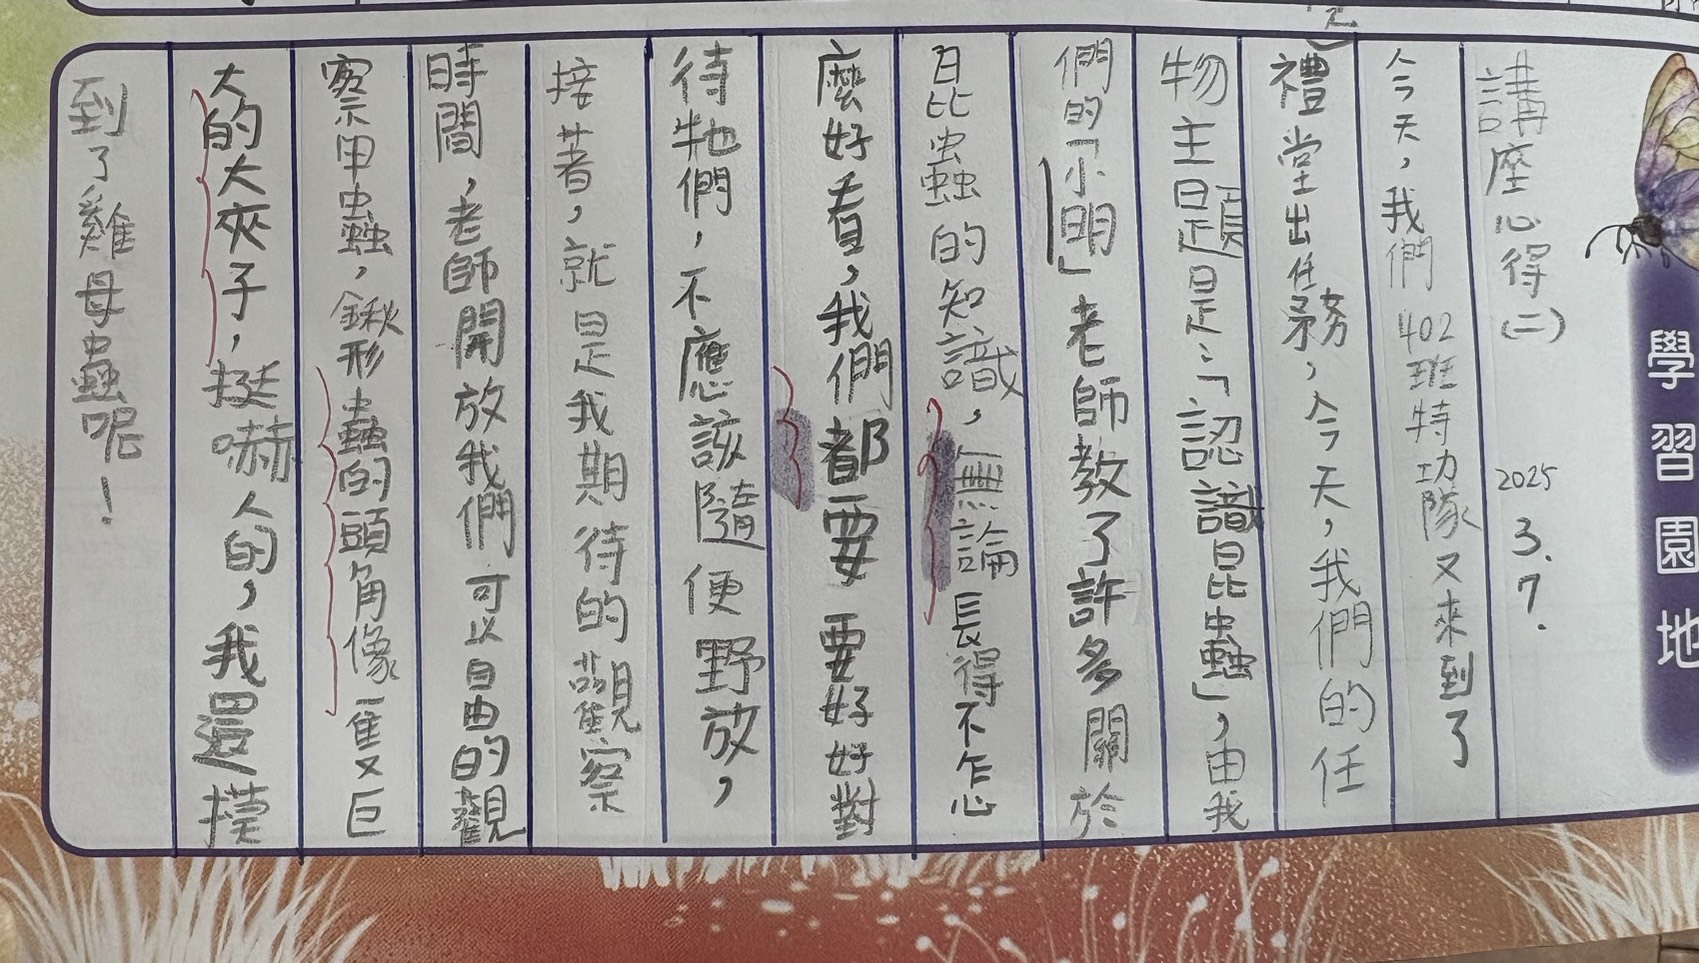 學習園地
講座心得(二) 2025 3.7.
今天,我們402班特功隊又來到了
禮堂出任務,今天,我們的任
物主題是:「認識昆蟲」,由我
們的「小明」老師教了許多關於
昆蟲的知識,無論長得不怎
麼好看,我們都要要好好對
待牠們,不應該隨便野放,
接著,就是我期待的觀察
時間,老師開放我們可以自由的觀
察甲蟲,鍬形蟲的頭角像一隻又巨
大的大夾子,挺嚇人的,我還摸
到了雞母蟲呢!